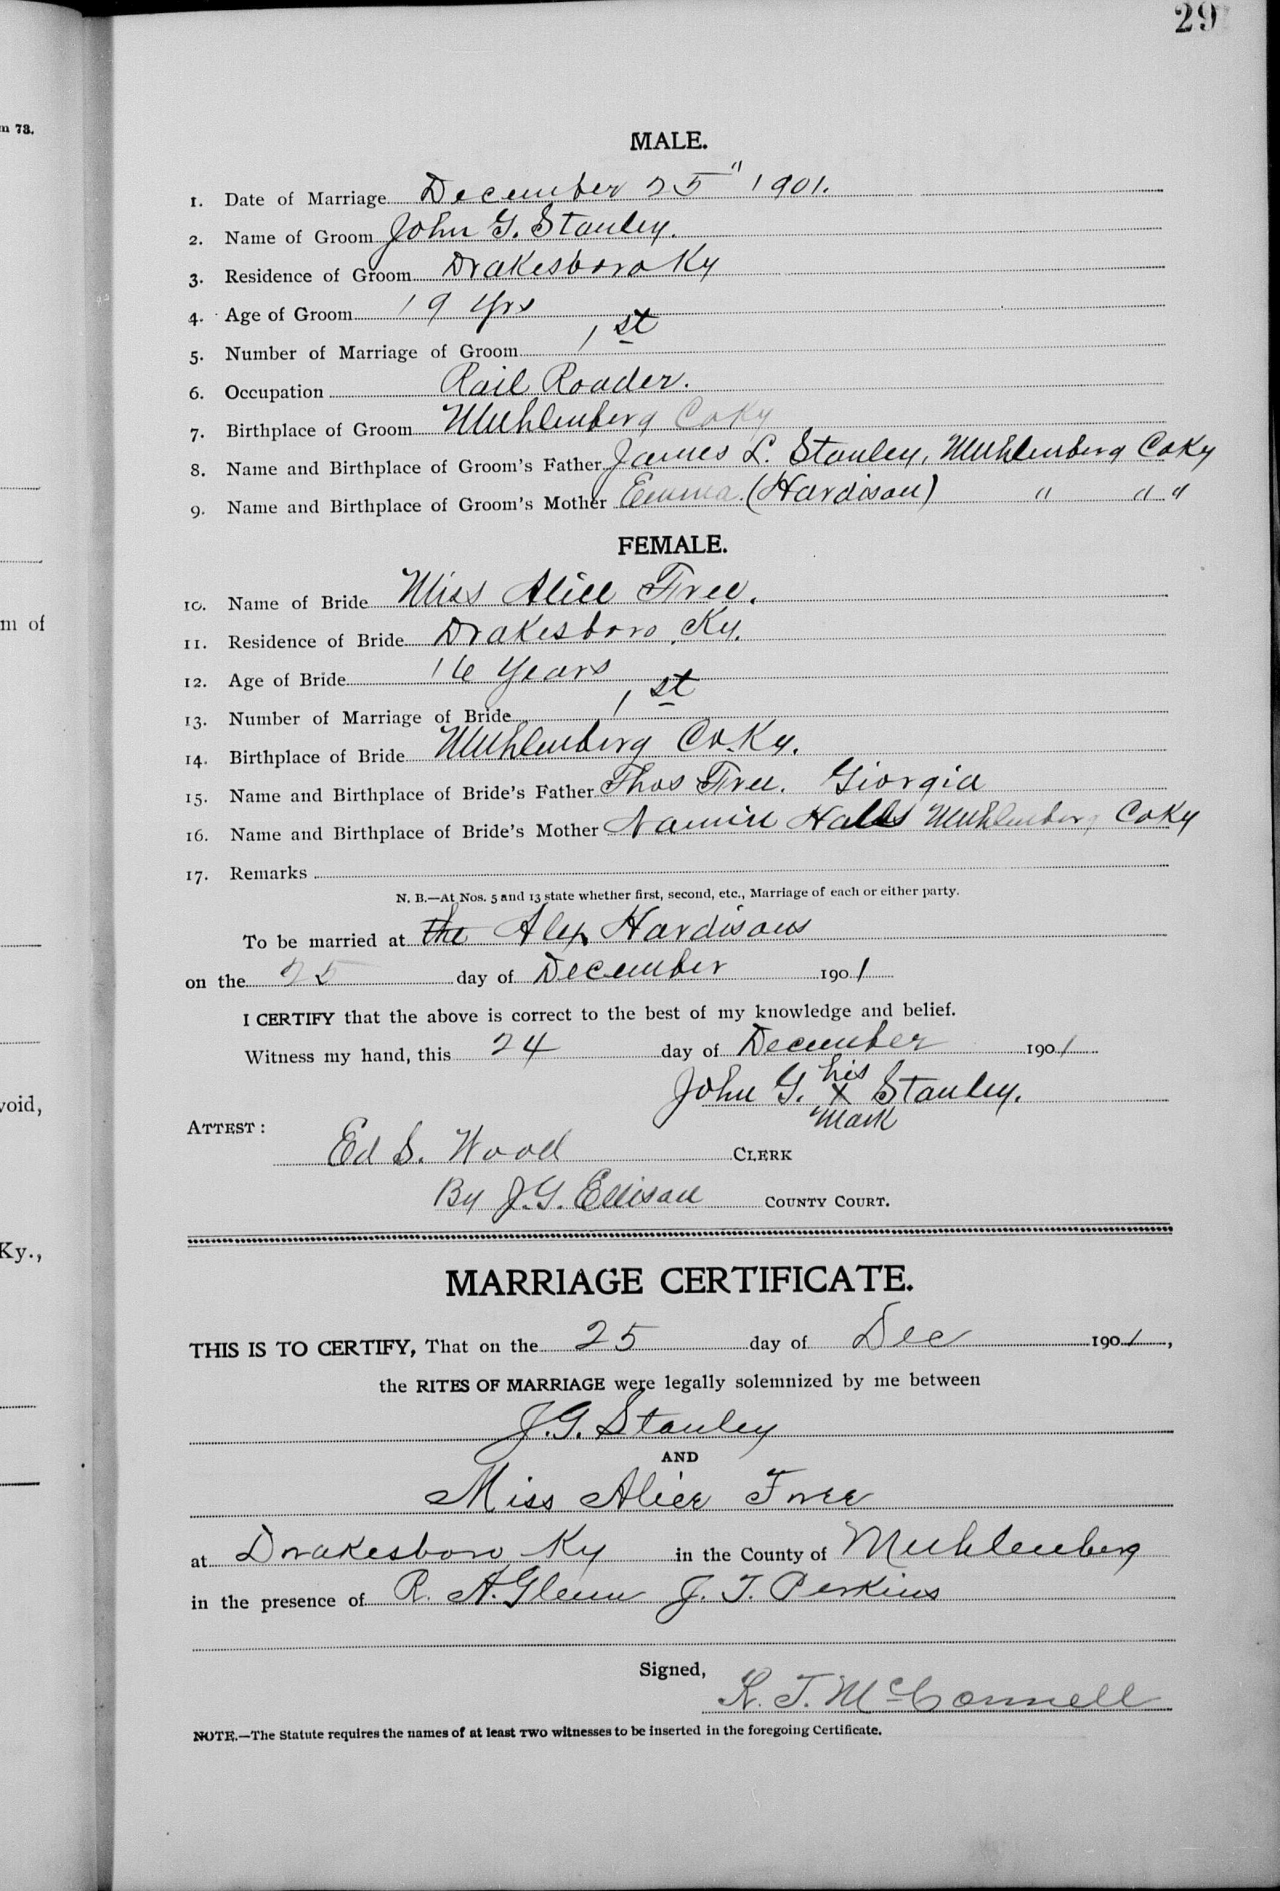 29
m 73.
MALE.
1. Date of Marriage December 25" 1901.
2. Name of Groom John G. Stanley.
3. Residence of Groom Drakesboro Ky
4. Age of Groom 19 Yrs
5. Number of Marriage of Groom 1st
6. Occupation Rail Roader.
7. Birthplace of Groom Muhlenberg Co Ky
8. Name and Birthplace of Groom's Father James L. Stanley, Muhlenberg Co Ky
9. Name and Birthplace of Groom's Mother Emma (Hardison) " " "
FEMALE.
10. Name of Bride Miss Alice Free.
m of
11. Residence of Bride Drakesboro, Ky.
12. Age of Bride 16 Years
13. Number of Marriage of Bride 1st
14. Birthplace of Bride Muhlenberg Co. Ky.
15. Name and Birthplace of Bride's Father Thos Free. Giorgia
16. Name and Birthplace of Bride's Mother Halls Muhlenberg Co Ky
17. Remarks
N. B.—At Nos. 5 and 13 state whether first, second, etc., Marriage of each or either party.
To be married at the Alex Hardisons
on the 25 day of December 1901
I CERTIFY that the above is correct to the best of my knowledge and belief.
Witness my hand, this 24 day of December 1901
his
John G. X Stanley.
mark
void,
ATTEST:
Ed S. Wood CLERK
By J. G. Ellison COUNTY COURT.
Ky.,
MARRIAGE CERTIFICATE.
THIS IS TO CERTIFY, That on the 25 day of Dec 1901,
the RITES OF MARRIAGE were legally solemnized by me between
J. G. Stanley
AND
Miss Alice Free
at Drakesboro Ky in the County of Muhlenberg
in the presence of R. A. Glenn J. T. Perkins
Signed,
K. T. McConnell
NOTE.—The Statute requires the names of at least TWO witnesses to be inserted in the foregoing Certificate.